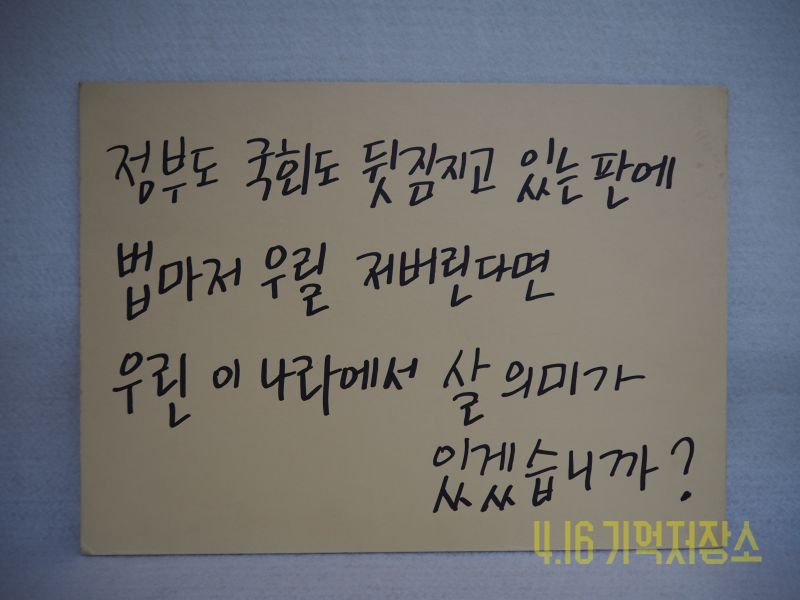 정부도 국회도 뒷짐지고 있는 판에
법마저 우릴 저버린다면
우린 이 나라에서 살 의미가
있겠습니까?
4.16 기억저장소